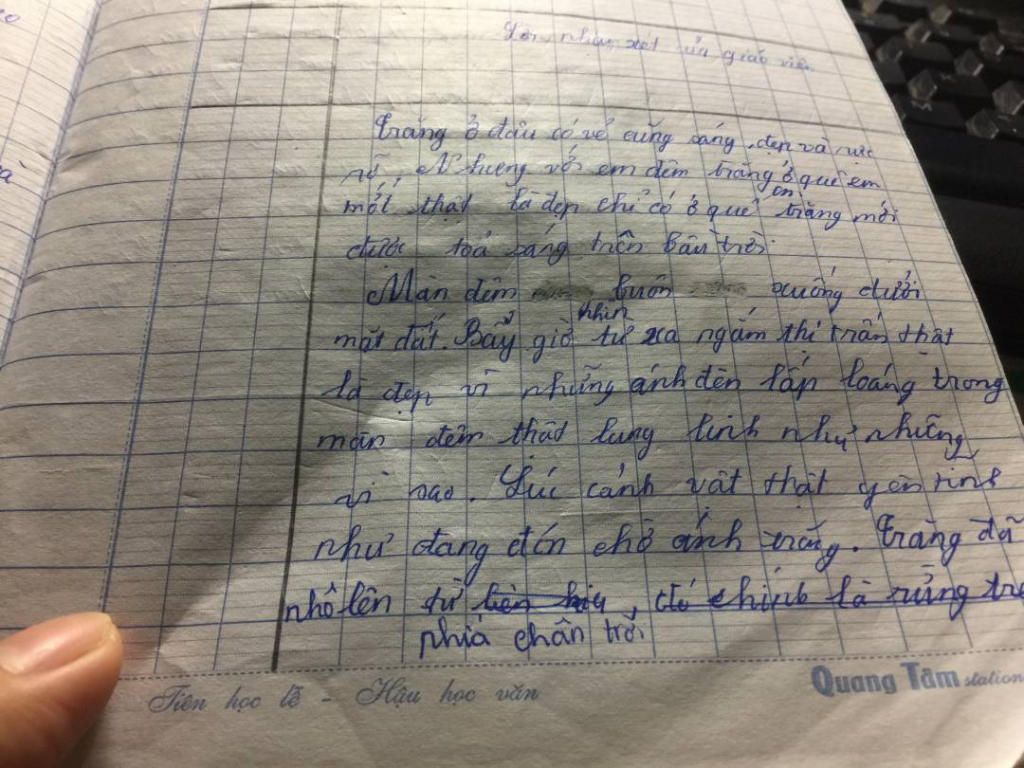 Lời nhận xét của giáo viên
Trăng ở đâu có vẻ cũng sáng, đẹp và rực
rỡ. Nhưng với em đêm trăng ở quê em
mới thật là đẹp chỉ có ở quê em trăng mới
được toả sáng trên bầu trời.
Màn đêm buôn xuống dưới
mặt đất. Bấy giờ nhìn từ xa ngắm thị trấn thật
là đẹp vì những ánh đèn lấp loáng trong
màn đêm thật lung linh như những
vì sao. Lúc cảnh vật thật yên tĩnh
như đang đón chờ ánh trăng. Trăng đã
nhô lên từ , đó chính là rừng tre
phía chân trời.
Tiên học lễ - Hậu học văn
Quang Tâm station